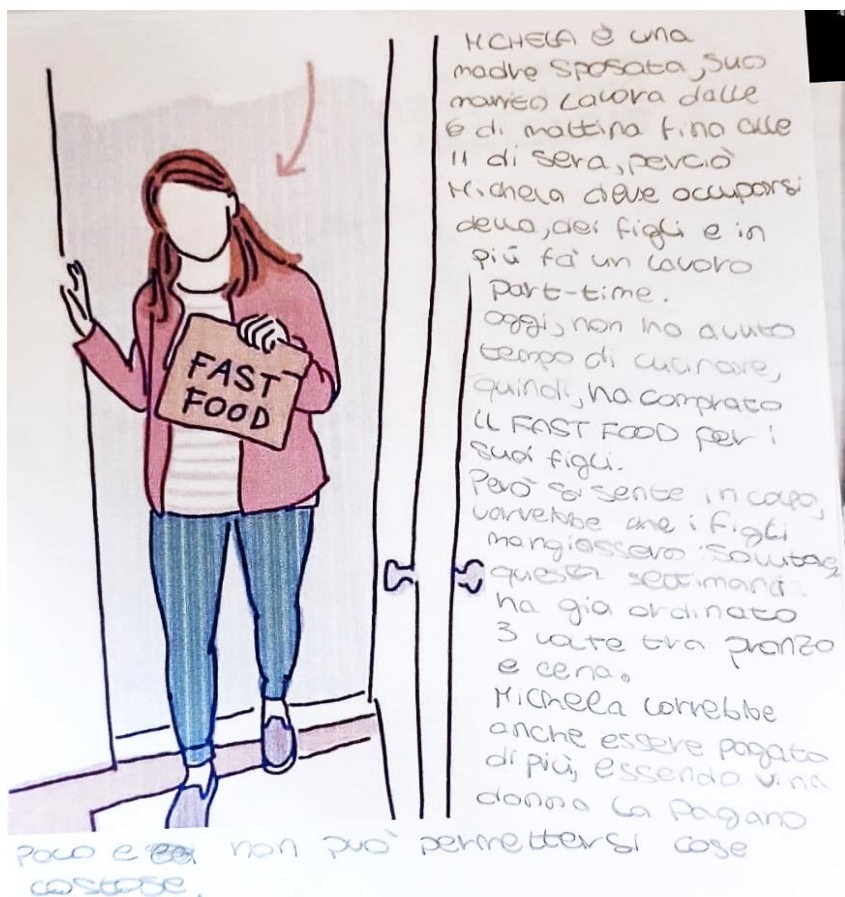 MCHELA è una
madre sposata, suo
marito lavora dalle
6 di mattina fino alle
11 di sera, perciò
Michela deve occuparsi
della, dei figli e in
più fa' un lavoro
part-time.
oggi, non ha avuto
tempo di cucinare,
quindi, ha comprato
il FAST FOOD per i
suoi figli.
Però si sente in colpa,
vorrebbe che i figli
mangiassero salutare,
questa settimana
ha gia ordinato
3 volte tra pranzo
e cena.
Michela vorrebbe
anche essere pagata
di più, essendo una
donna la pagano
poco e non può permettersi cose
costose.
FAST
FOOD